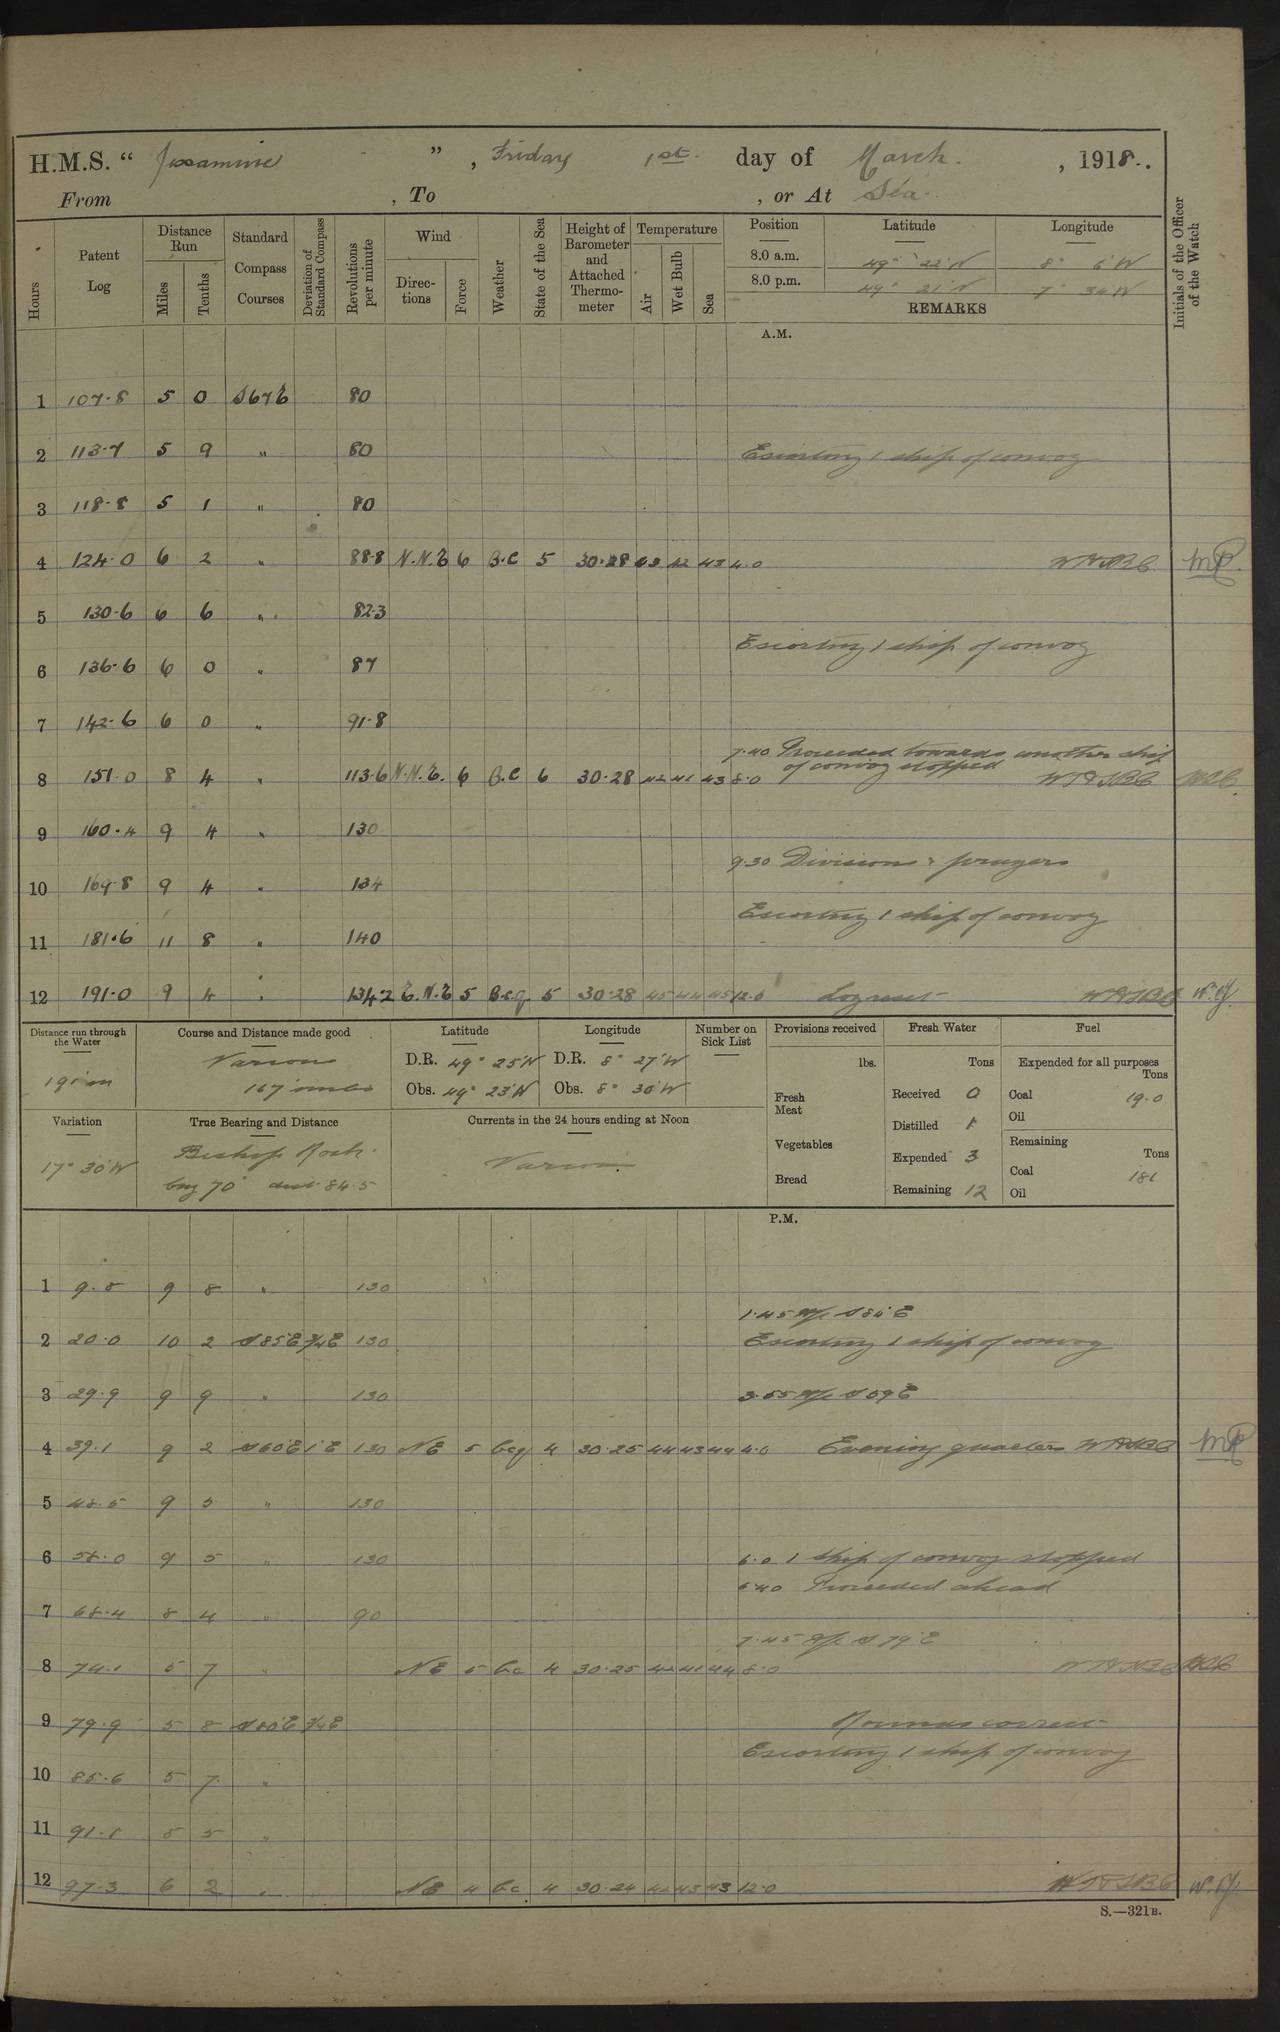 H.M.S. " Jessamine " , Friday 1st day of March. , 1918.
From , To , or At Sea.
Hours
Patent Log
Distance Run
Miles
Tenths
Standard Compass Courses
Deviation of Standard Compass
Revolutions per minute
Wind
Directions
Force
Weather
State of the Sea
Height of Barometer and Attached Thermometer
Temperature
Air
Wet Bulb
Sea
Position Latitude Longitude
8.0 a.m. 49° 22'N 8° 6'W
8.0 p.m. 49° 21'N 7° 34'W
REMARKS
Initials of the Officer of the Watch
A.M.
1 107.8 5 0 S67E 80
2 113.7 5 9 " 80 Escorting 1 ship of convoy
3 118.8 5 1 " 80
4 124.0 6 2 " 88.8 N.N.E 6 B.C 5 30.28 43 42 43 4.0
5 130.6 6 6 " 82.3
Escorting 1 ship of convoy
6 136.6 6 0 " 87
7 142.6 6 0 " 91.8
7.40 Proceeded towards another ship
of convoy stopped
8 151.0 8 4 " 113.6 N.N.E. 6 B.C 6 30.28 42 41 43 8.0
9 160.4 9 4 " 130
9.30 Divisions & prayers
10 169.8 9 4 " 134
Escorting 1 ship of convoy
11 181.6 11 8 " 140
12 191.0 9 4 " 134.2 E.N.E 5 B.c.q 5 30.28 45 44 45 12.0 Log reset
Distance run through the Water
191 m
Course and Distance made good
Various
167 miles
Latitude
D.R. 49° 25'N
Obs. 49° 23'N
Longitude
D.R. 8° 27'W
Obs. 8° 30'W
Number on Sick List
Provisions received
lbs.
Fresh Meat
Vegetables
Bread
Fresh Water
Tons
Received 0
Distilled 1
Expended 3
Remaining 12
Fuel
Expended for all purposes
Tons
Coal 19.0
Oil
Remaining
Tons
Coal 181
Oil
Variation
17° 30'W
True Bearing and Distance
Bishop Rock.
brg 70° dist 84.5
Currents in the 24 hours ending at Noon
Various
P.M.
1 9.8 9 8 " 130
1.45 A/c S84°E
2 20.0 10 2 S85°E 3/4E 130 Escorting 1 ship of convoy
3 29.9 9 9 " 130 3.55 A/c S59°E
4 39.1 9 2 S60°E 1°E 130 NE 5 bcq 4 30.25 44 43 44 4.0 Evening quarters
5 48.5 9 5 " 130
6 58.0 9 5 " 130 6.0 1 ship of convoy stopped
6.40 Proceeded ahead
7 68.4 8 4 " 90
7.45 A/c S79°E
8 74.1 5 7 " NE 5 bc 4 30.25 42 41 44 8.0
9 79.9 5 8 S80°E 3/4E Rounds correct
Escorting 1 ship of convoy
10 85.6 5 7 "
11 91.1 5 5 "
12 97.3 6 2 " NE 4 bc 4 30.24 42 43 43 12.0
S.—321B.